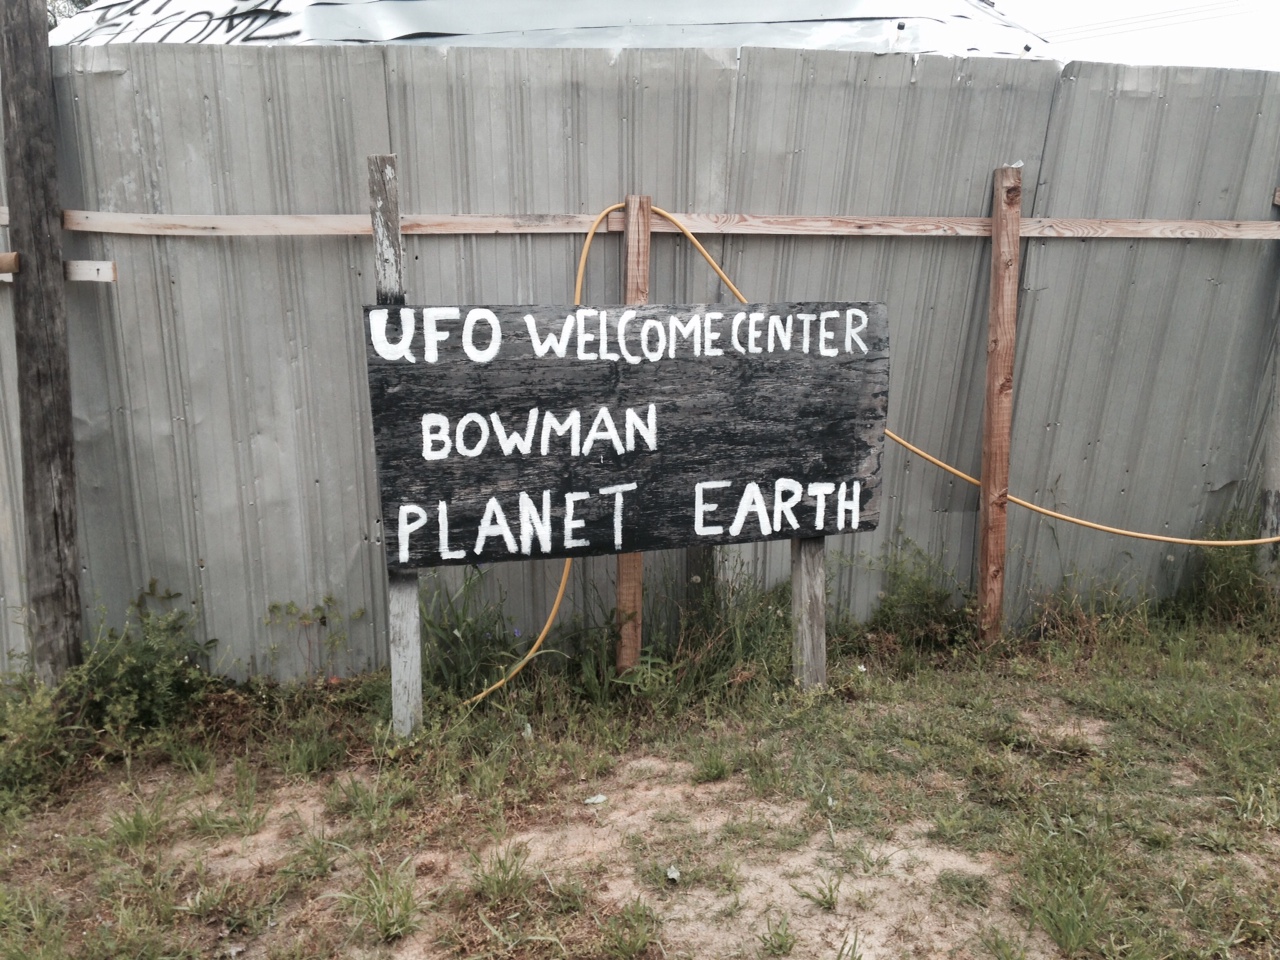 WELCOME
UFO WELCOME CENTER
BOWMAN
PLANET EARTH